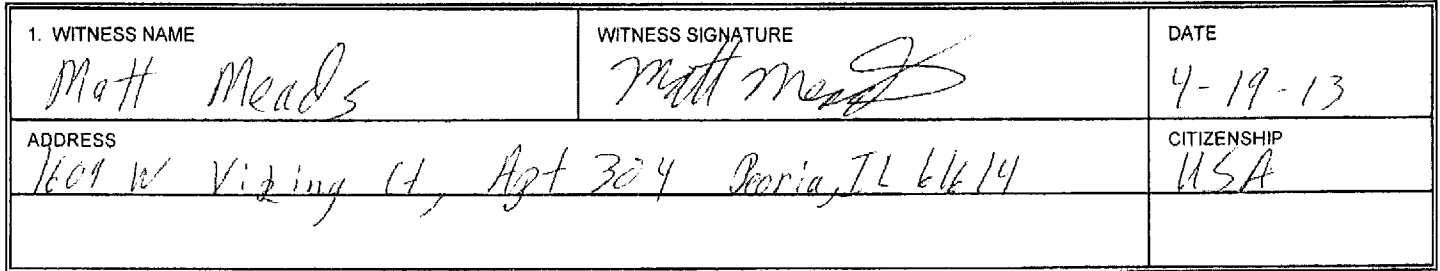 1. WITNESS NAME
Matt Meads
WITNESS SIGNATURE
Matt Meads
DATE
4-19-13
ADDRESS
W Viking Ct, Apt 304 Peoria, IL 61614
CITIZENSHIP
USA